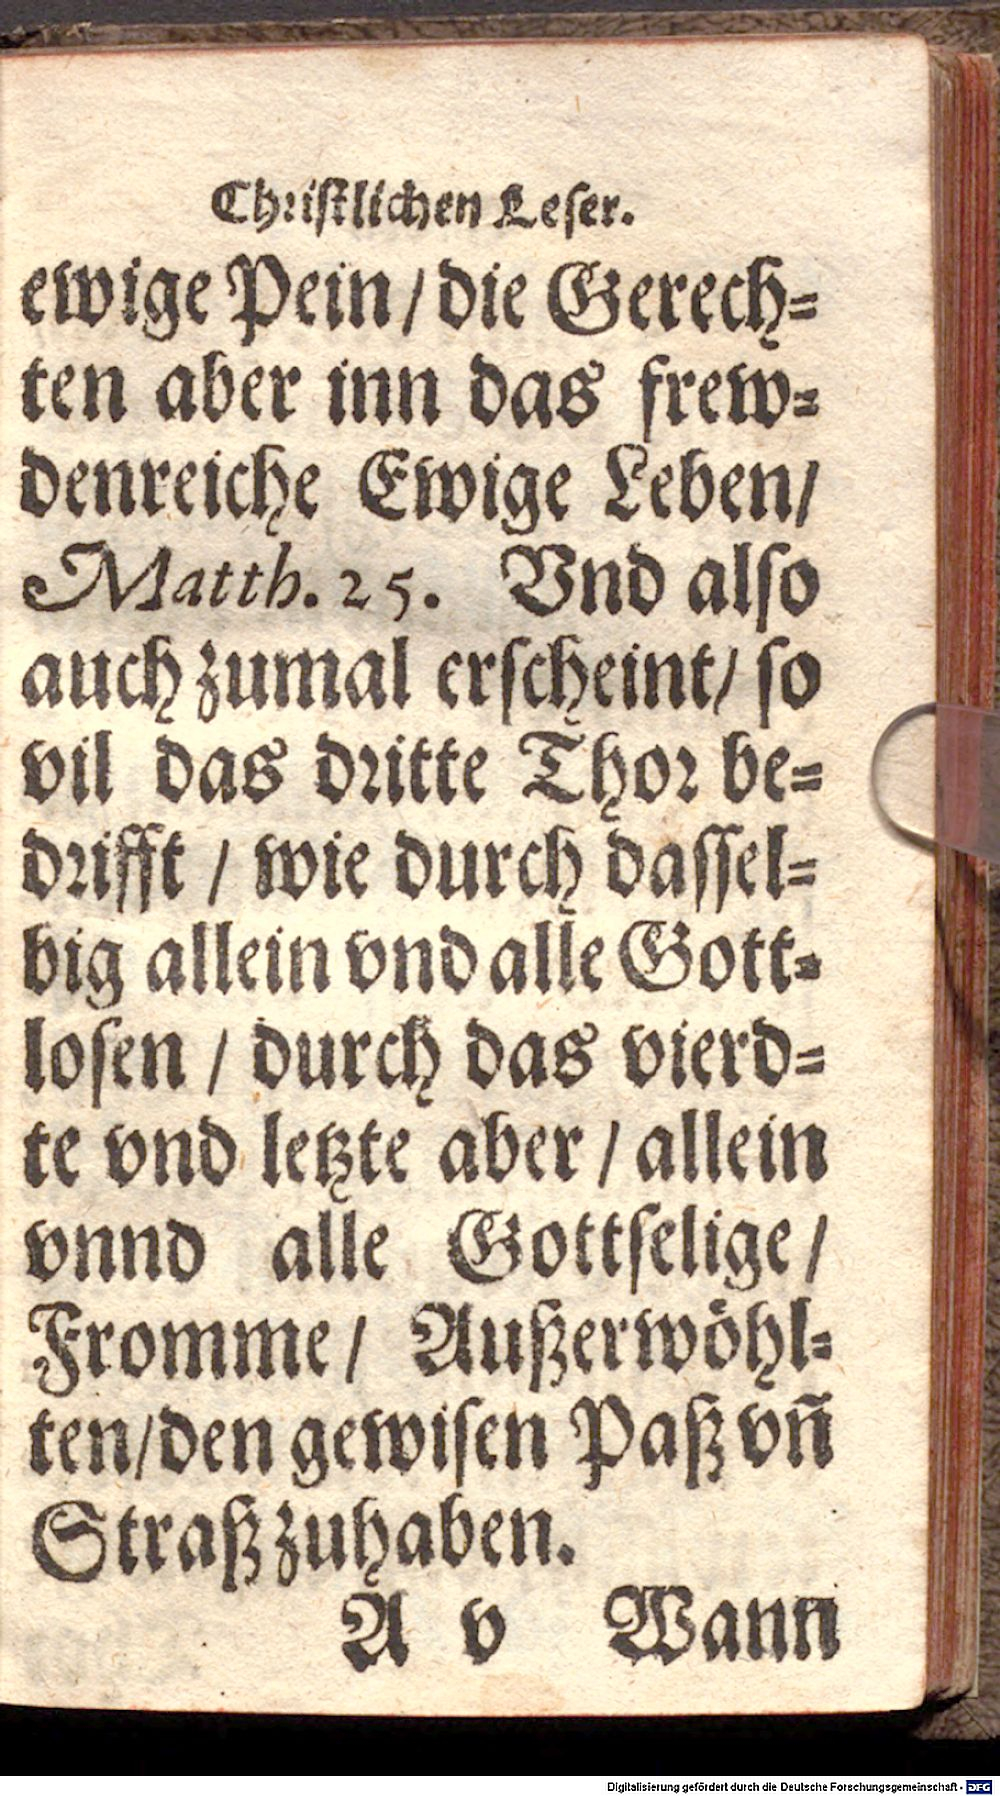 Christlichen Leser.
ewige Pein / die Gerech-
ten aber inn das frew-
denreiche Ewige Leben /
Matth. 25. Vnd also
auch zumal erscheint / so
vil das dritte Thor be-
drifft / wie durch dassel-
big allein vnd alle Gott-
losen / durch das vierd-
te vnd letzte aber / allein
vnnd alle Gottselige /
Fromme / Außerwöhl-
ten / den gewisen Paß vñ
Straß zuhaben.
A v Wann
Digitalisierung gefördert durch die Deutsche Forschungsgemeinschaft - DFG